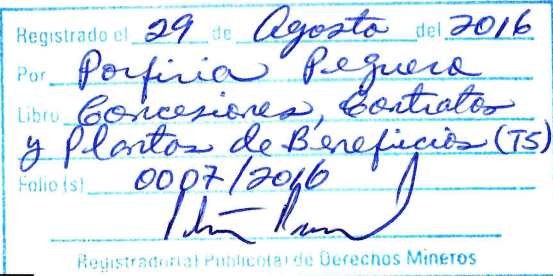 Registrado el 29 de Agosto del 2016
Por Porfiria Peguero
Libro Concesiones, Contratos
y Plantas de Beneficios (TS)
Folio (s) 0007/2016
Registrador(a) Público(a) de Derechos Mineros